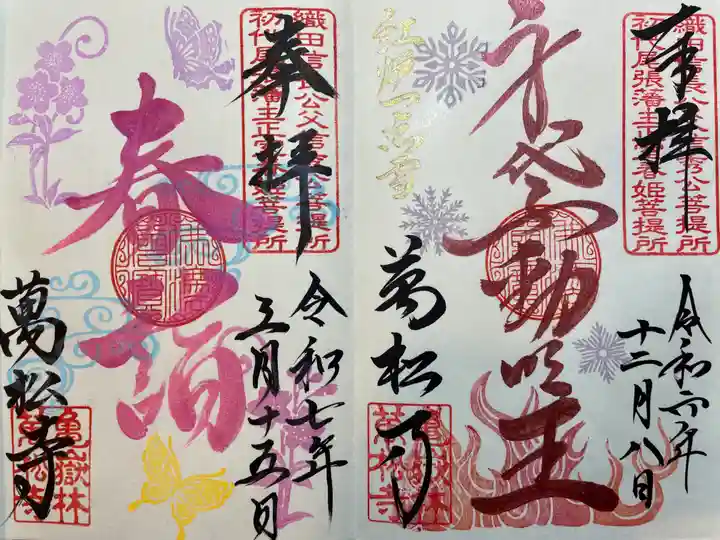 奉拝
織田信長公父信秀公菩提所
初代尾張藩主正室春姫菩提所
令和六年
十二月八日
身代不動明王
紅炉一点雪
萬松寺
龜嶽林
萬松寺
奉拝
織田信長公父信秀公菩提所
初代尾張藩主正室春姫菩提所
令和七年
三月十五日
春詣
萬松寺
龜嶽林
萬松寺